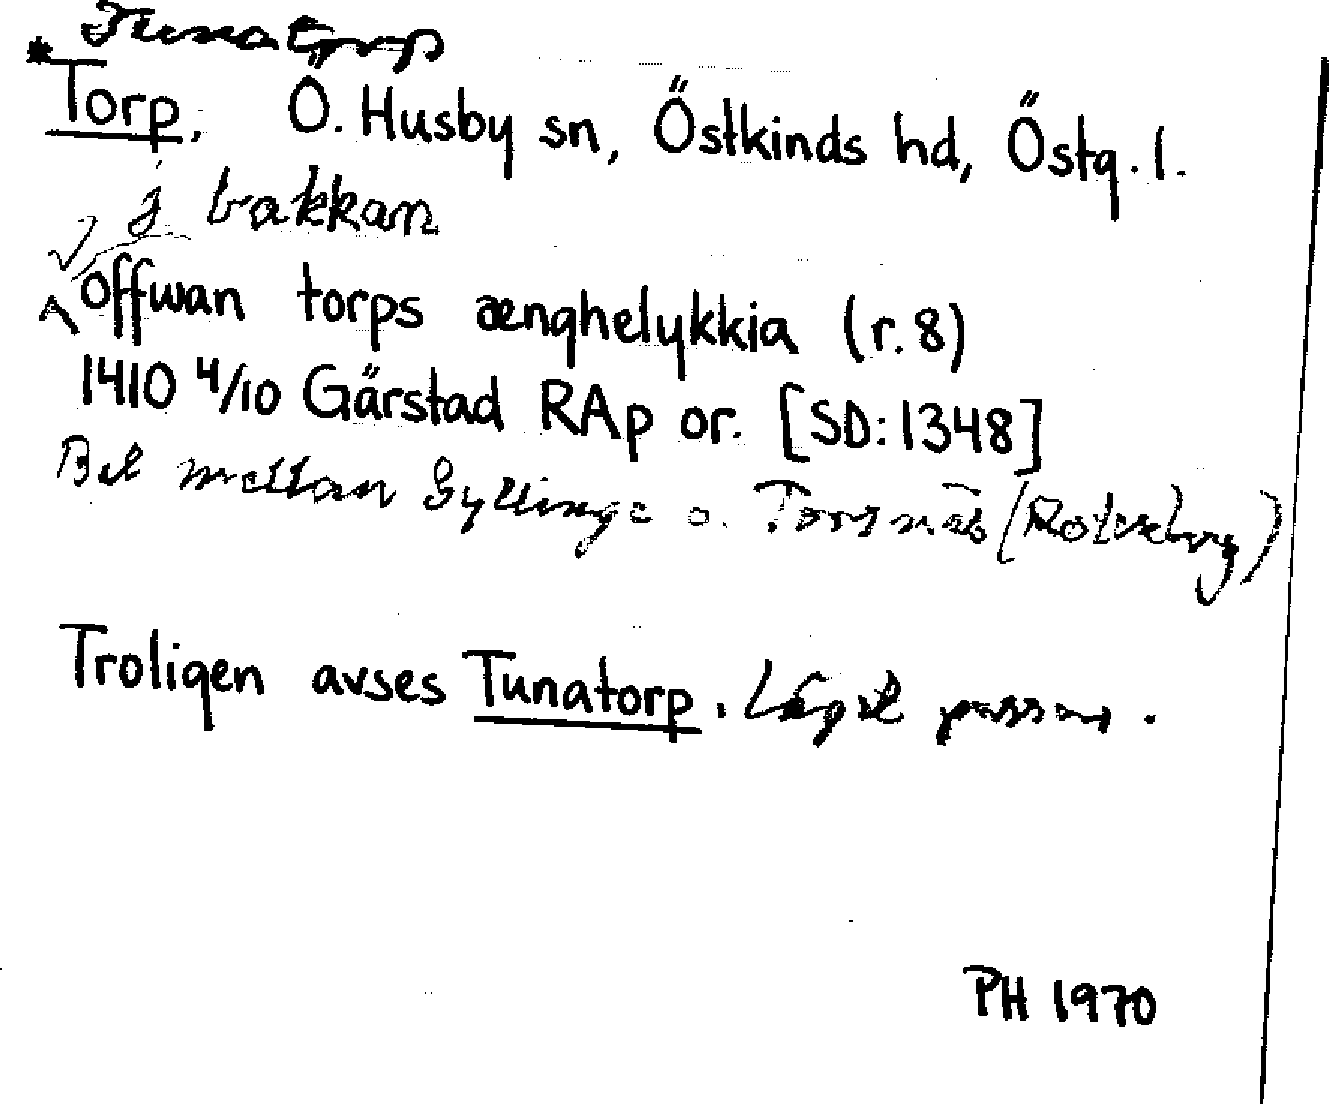 Tunatorp
* Torp, Ö. Husby sn, Östkinds hd, Östg. l.
j bakkan
offwan torps ænghelykkia (r. 8)
1410 4/10 Gärstad RAp or. [SD: 1348]
Bel mellan Gyllinge o. Torsnäs (Rotenberg)
Troligen avses Tunatorp. Läget passar.
PH 1970